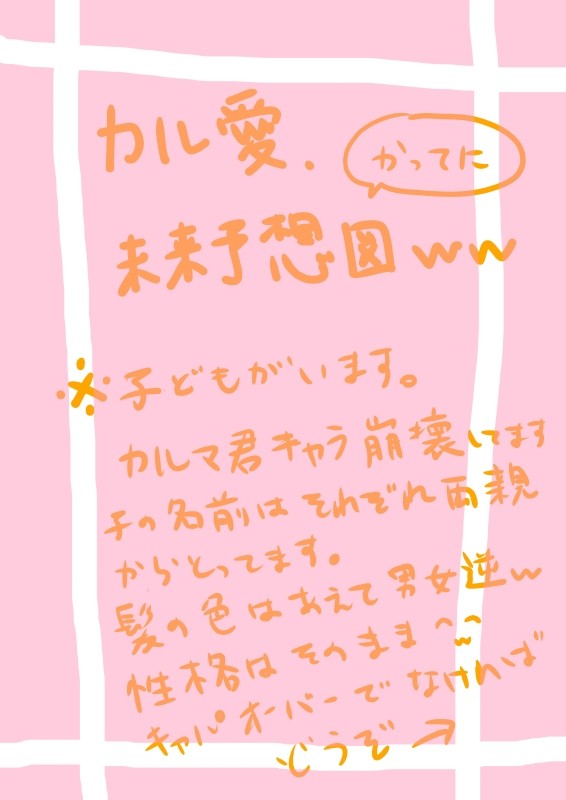 カル愛.
かってに
未来予想図ww
※子どもがいます。
カルマ君キャラ崩壊してます
子の名前はそれぞれ両親
からとってます。
髪の色はあえて男女逆w
性格はそのまま^^
キャパオーバーでなければ
どうぞ→